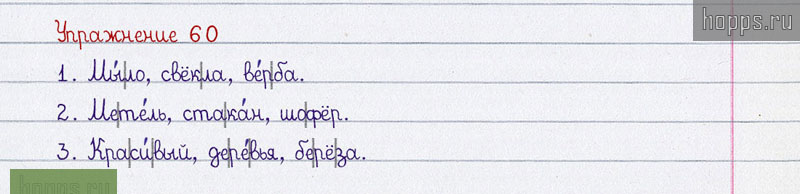 hopps.ru
Упражнение 60
1. Мы́|ло, свёк|ла, ве́р|ба.
2. Ме|те́ль, ста|ка́н, шо|фёр.
3. Кра|си́|вый, де|ре́|вья, бе|рё|за.
hopps.ru